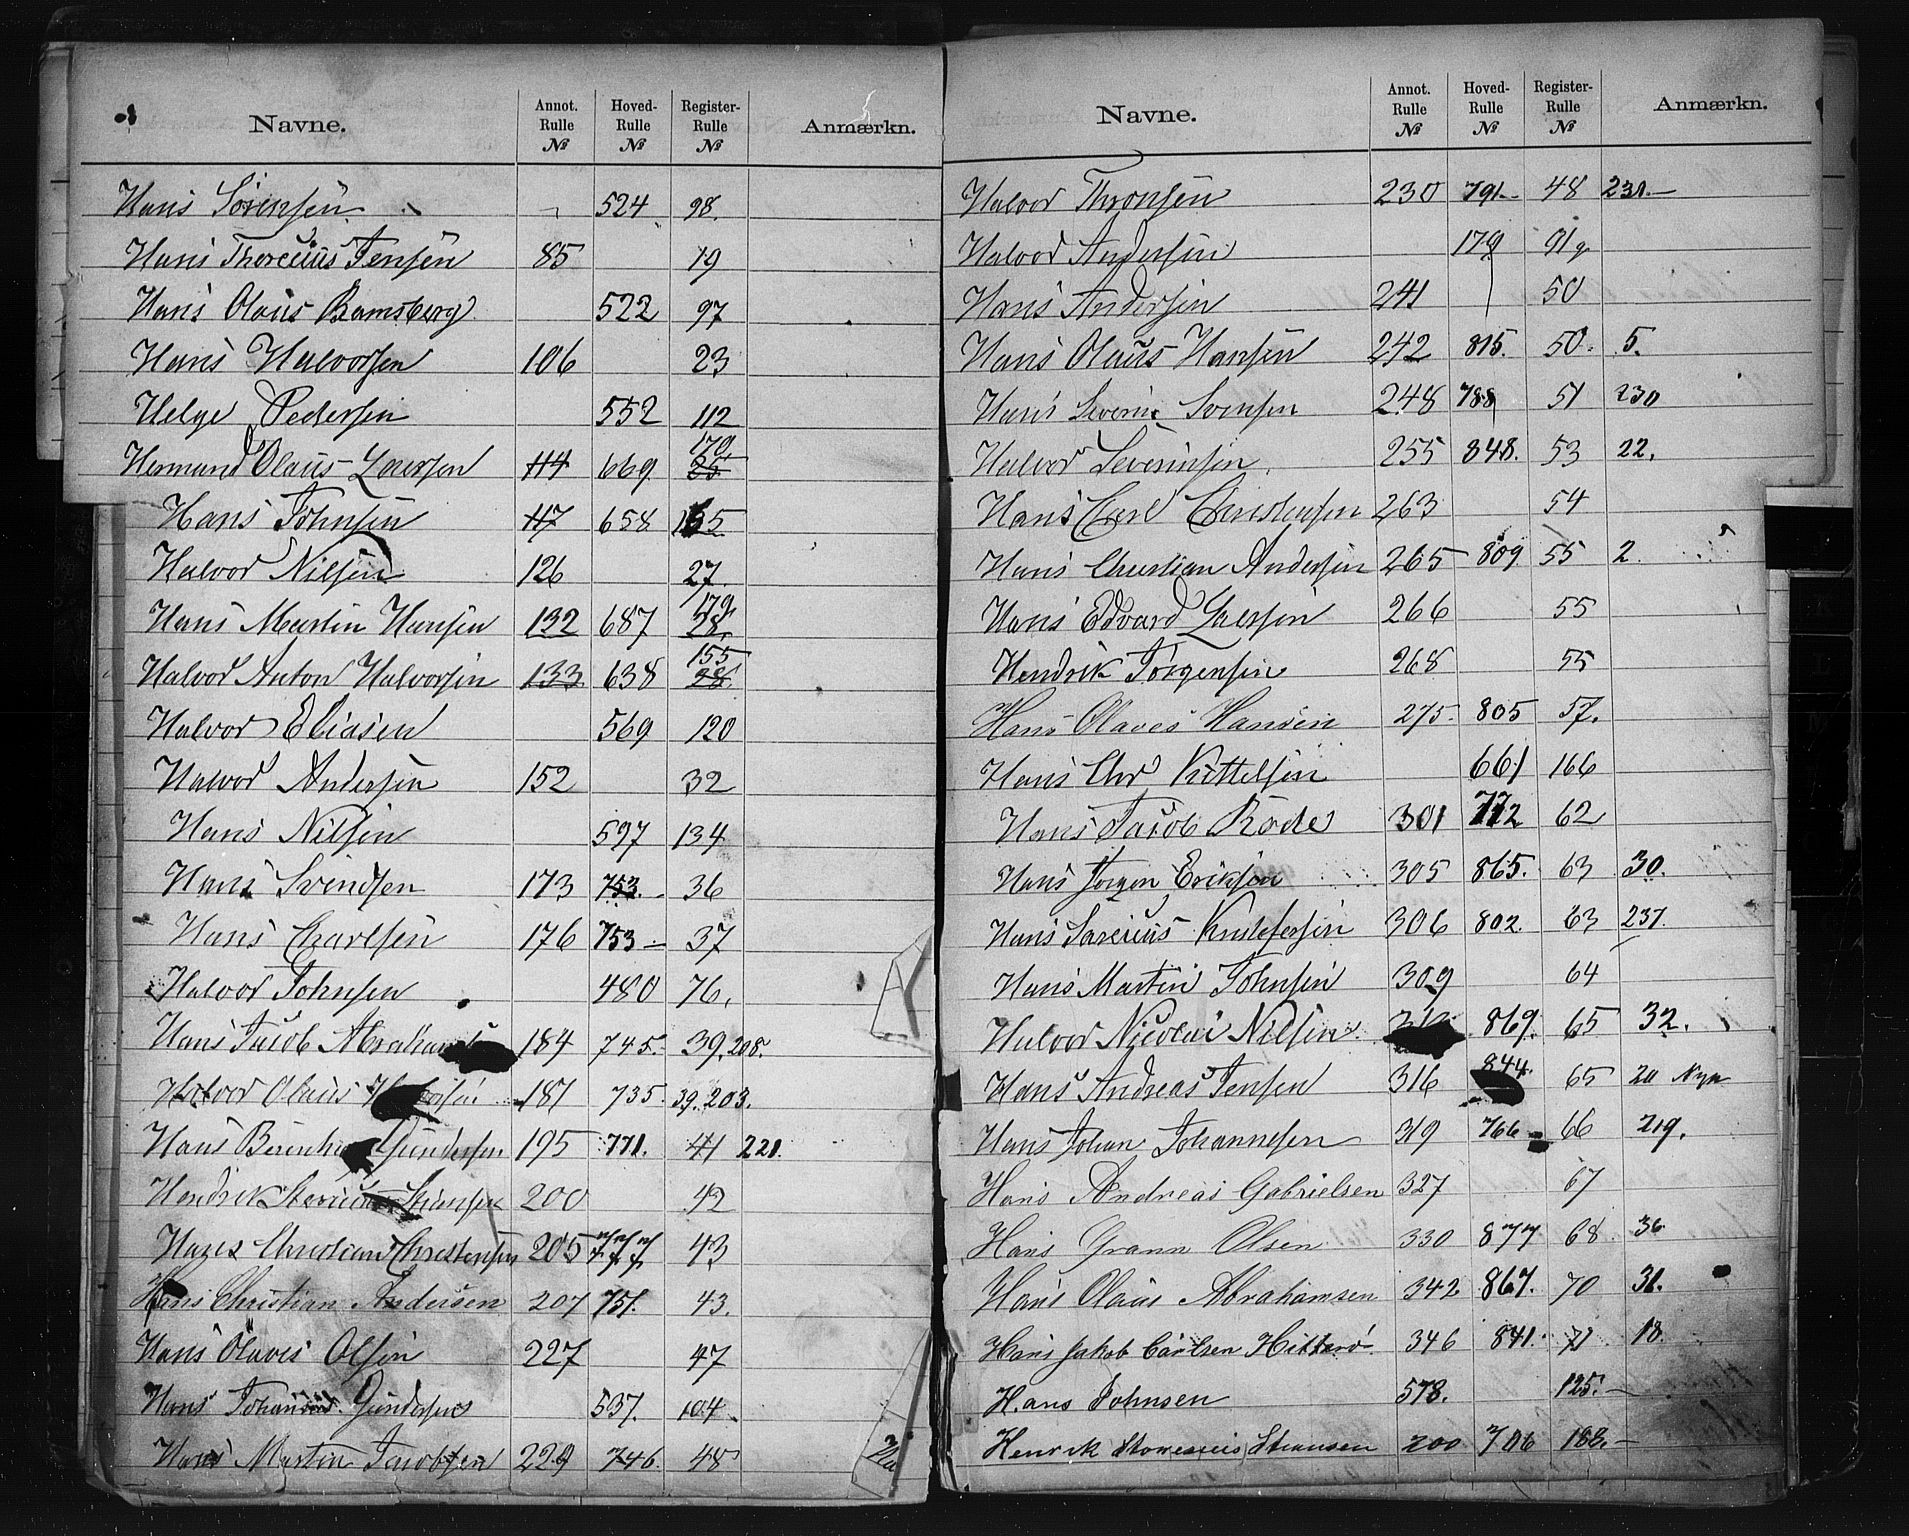 Navne. Annot. Rulle № Hoved- Rulle № Register- Rulle № Anmærkn.
Hans Sörensen 524 98.
Hans Thoreius Jensen 85 19
Hans Olaus Ramsberg 522 97
Hans Halvorsen 106 23
Helge Pedersen 552 112
Hermand Olaus Larsen 114 669 25
Hans Johnsen 117 658 165
Halvor Nilsen 126 27
Hans Martin Hansen 132 687 28
Halvor Anton Halvorsen 133 638 155 28
Halvor Eliasen 569 120
Halvor Andersen 152 32
Hans Nilsen 597 134
Hans Svendsen 173 753. 36
Hans Carlsen 176 753 – 37
Halvor Johnsen 480 76.
Hans Jacob 184 745. 39. 208.
Halvor Olaus 181 735. 39. 203.
Hans Gundersen 195 771. 41 221.
Hendrik 200 42
Christian Christensen 205 777 43
Hans Christian Andersen 207 751. 43.
Hans Olaves Olsen 227 47
Hans Gundersen 537. 104
Hans Martin Jacobsen 229 746. 48
Navne. Annot. Rulle № Hoved- Rulle № Register- Rulle № Anmærkn.
Halvor Thronsen 230 791 – 48 231. –
Halvor Andersen 179 91
Hans Andersen 241 50
Hans Olaus Hansen 242 815. 50. 5.
Hans Severin Svensen 248 788 51 230
Halvor Severinsen. 255 848. 53 22.
Hans Carl Christensen 263 54
Hans Christian Andersen 265 809 55 2
Hans Edvard Larsen 266 55
Hendrik Jörgensen 268 55
Hans Olaves Hansen 275. 805 57.
Hans Chr Kittelsen 661 166
Hans Jacob Rode 301 772 62
Hans Jörgen Eriksen 305 865. 63 30.
Hans Kristofersen 306 802. 63 237.
Hans Martin Johnsen 309 64
Halvor Nicolai Nilsen. 869. 65 32.
Hans Andreas Jensen 316 844. 65 20
Hans Johan Johannesen 319 766 66 219.
Hans Andreas Gabrielsen 327 67
Hans Grann Olsen 330 877 68 36
Hans Olaus Abrahamsen 342 867. 70 31.
Hans Jakob Carlsen Hitterö. 346 841. 71 18.
Hans Johnsen 578. 125. –
Henrik 200 706 188. –